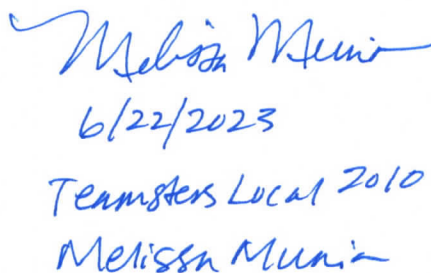 Melissa Munio
6/22/2023
Teamsters Local 2010
Melissa Munia